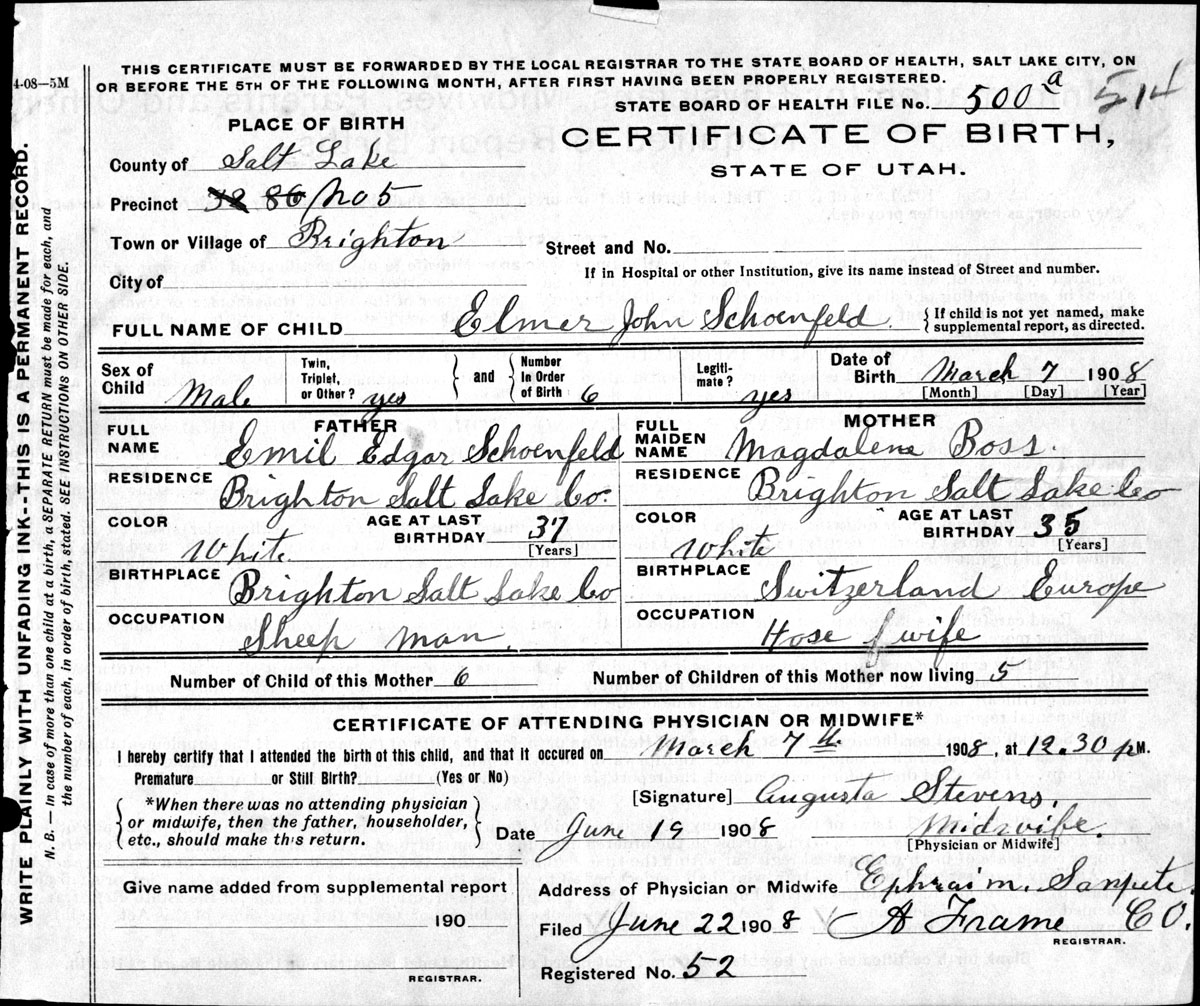 4-08—5M
THIS CERTIFICATE MUST BE FORWARDED BY THE LOCAL REGISTRAR TO THE STATE BOARD OF HEALTH, SALT LAKE CITY, ON
OR BEFORE THE 5TH OF THE FOLLOWING MONTH, AFTER FIRST HAVING BEEN PROPERLY REGISTERED.
STATE BOARD OF HEALTH FILE No. 500 a 514
PLACE OF BIRTH
CERTIFICATE OF BIRTH,
STATE OF UTAH.
County of Salt Lake
Precinct 86 No 5
Town or Village of Brighton
Street and No.
If in Hospital or other Institution, give its name instead of Street and number.
City of
FULL NAME OF CHILD Elmer John Schoenfeld. { If child is not yet named, make
supplemental report, as directed.
Sex of Child Male
Twin, Triplet, or Other? yes } and { Number In Order of Birth 6
Legiti-mate? yes
Date of Birth March 7 1908
[Month] [Day] [Year]
FATHER
FULL NAME Emil Edgar Schoenfeld
RESIDENCE Brighton Salt Lake Co.
COLOR White AGE AT LAST BIRTHDAY 37 [Years]
BIRTHPLACE Brighton Salt Lake Co
OCCUPATION Sheep man.
MOTHER
FULL MAIDEN NAME Magdalena Boss.
RESIDENCE Brighton Salt Lake Co
COLOR White AGE AT LAST BIRTHDAY 35 [Years]
BIRTHPLACE Switzerland Europe
OCCUPATION Hose wife
Number of Child of this Mother 6 Number of Children of this Mother now living 5
CERTIFICATE OF ATTENDING PHYSICIAN OR MIDWIFE*
I hereby certify that I attended the birth of this child, and that it occured on March 7th. 1908, at 12.30 pM.
Premature or Still Birth? (Yes or No)
{ *When there was no attending physician
or midwife, then the father, householder,
etc., should make this return. }
[Signature] Augusta Stevens.
Date June 19 1908 Midwife.
[Physician or Midwife]
Give name added from supplemental report
190
REGISTRAR.
Address of Physician or Midwife Ephraim. Sanpete. CO.
Filed June 22 1908 A Frame
REGISTRAR.
Registered No. 52
WRITE PLAINLY WITH UNFADING INK--THIS IS A PERMANENT RECORD.
N. B. — In case of more than one child at a birth, a SEPARATE RETURN must be made for each, and
the number of each, in order of birth, stated. SEE INSTRUCTIONS ON OTHER SIDE.